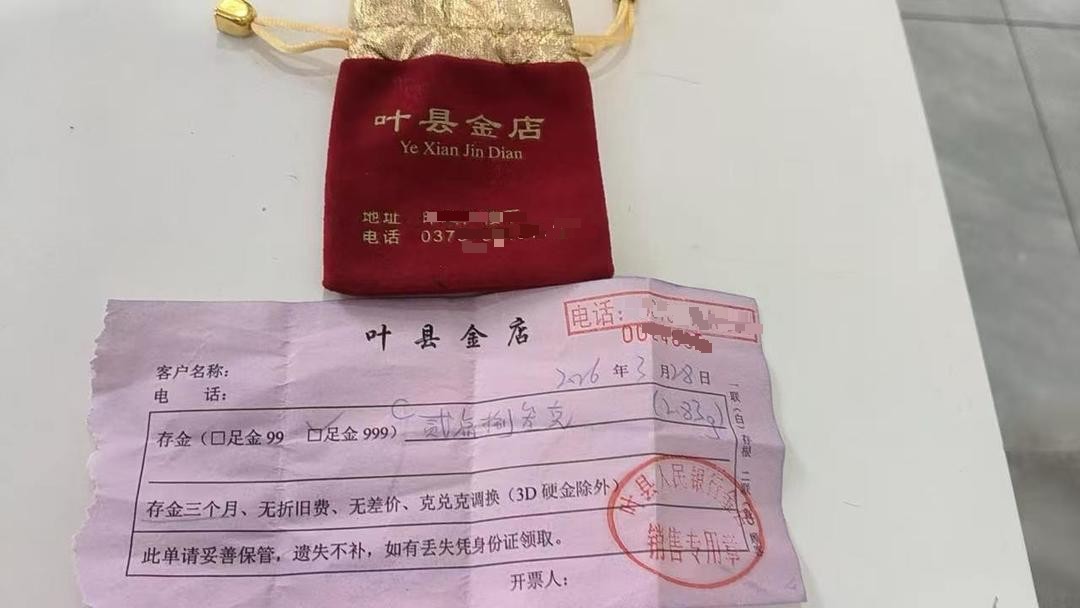 叶县金店
Ye Xian Jin Dian
地址
电话 037
叶县金店
电话:
客户名称:
电 话:
2026 年 3 月 28 日
存金(□足金99 □足金999) 贰点捌叁克 (2.83g)
存金三个月、无折旧费、无差价、克兑克调换(3D硬金除外)
此单请妥善保管,遗失不补,如有丢失凭身份证领取。
开票人:
一联(白)存根 二联
叶县人民银行金
销售专用章